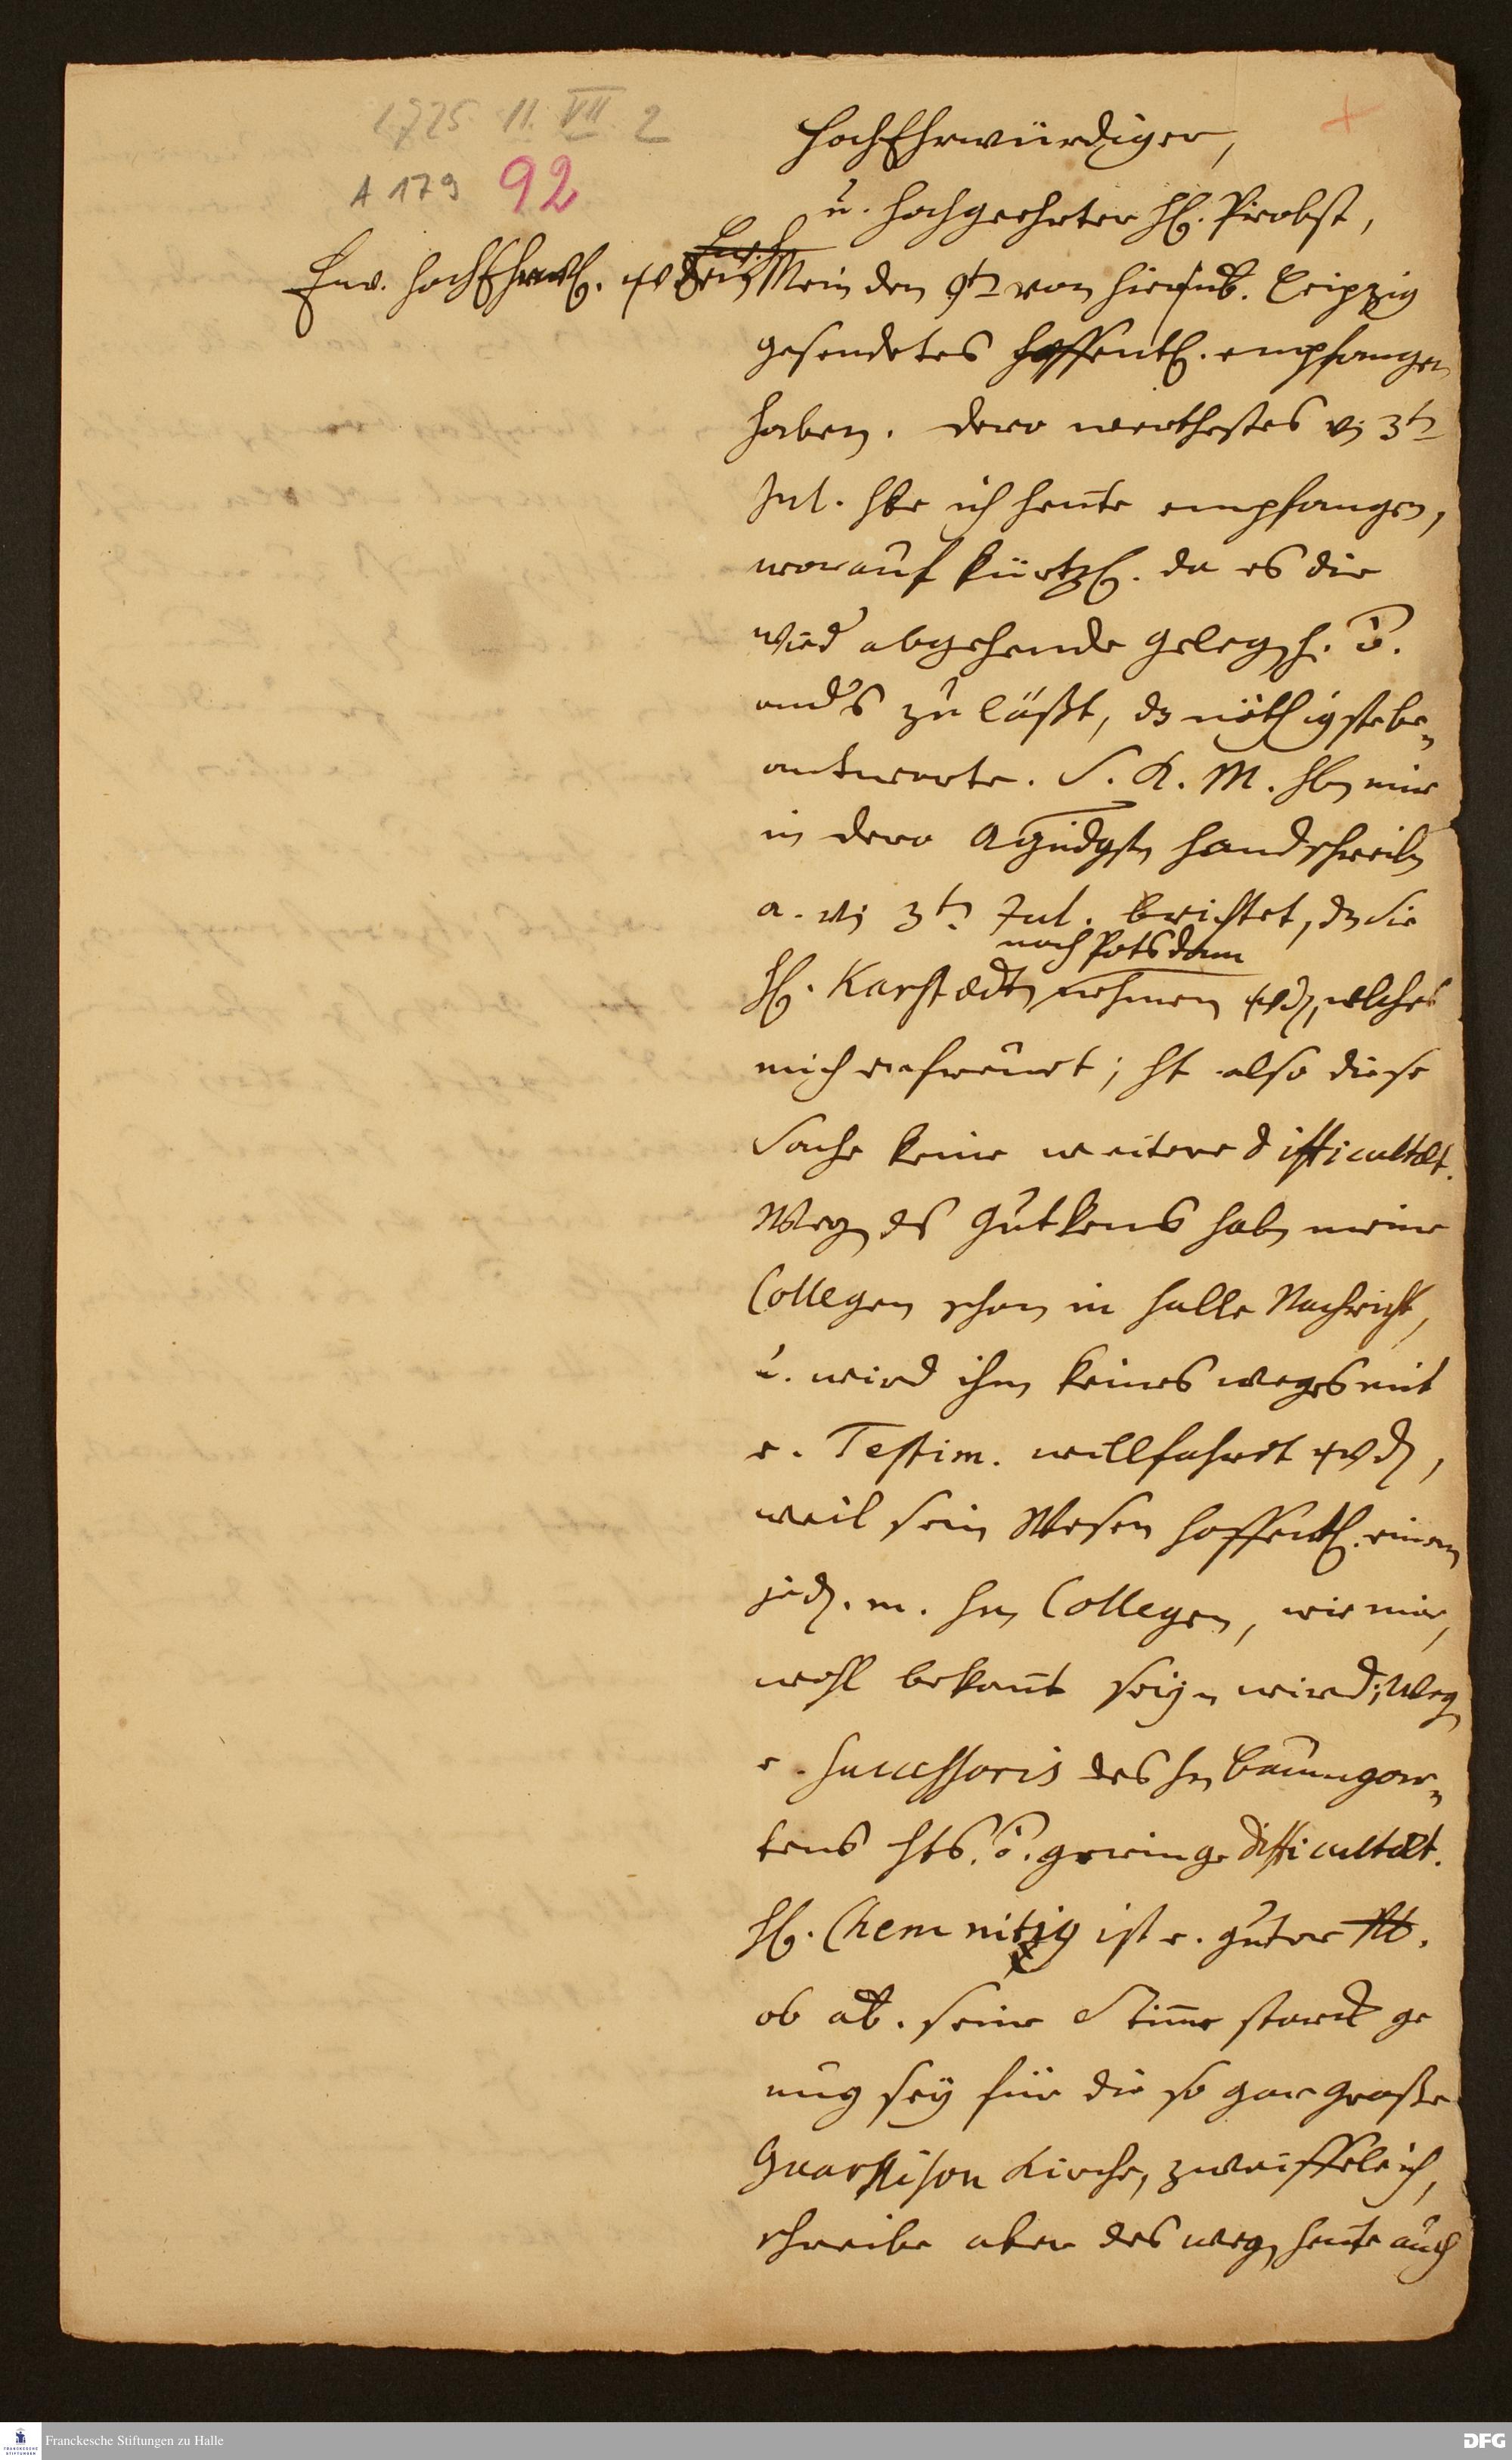 1725 11. VII 2
A 179 92
HochEhrwürdiger,
u. Hochgeehrter H. Probst,
Ew. HochEhrw. werden Mein den 9t von hier üb. Leipzig
gesendetes hoffentl. empfangen
haben. dero werthestes v. 3t
Jul. hbe ich heute empfangen,
worauf kürtzl. da es die
wied abgehende gelegh.
ands zu läßt, dz nöthigste be-
antworte. S. K. M. hbn mir
in dero agndgstn handschreibn
a. v. 3tn Jul. berichtet, dz Sie
nach Potsdam
H. Karstedtn nehmen wdn, welches
mich erfreuet; ht also diese
Sache keine weitere difficultæt.
Wegn des Gutkens habn meine
Collegen schon in Halle Nachricht,
u. wird ihm keines weges mit
e. Testim. willfahret wdn,
weil sein Wesen hoffentl. einem
jedn. m. Hn Collegen, wie mir,
wohl bekant seyn wird; Wegn
e. Successoris des Hn Baumgar-
tens hts. geringe difficultæt.
H. Chemnitzig ist e. guter
ob ab. seine Stime starck ge
nug sey für die so gar große
Guarnison Kirche, zweiffele ich,
schreibe aber deswegn heute auch
Franckesche Stiftungen zu Halle
DFG